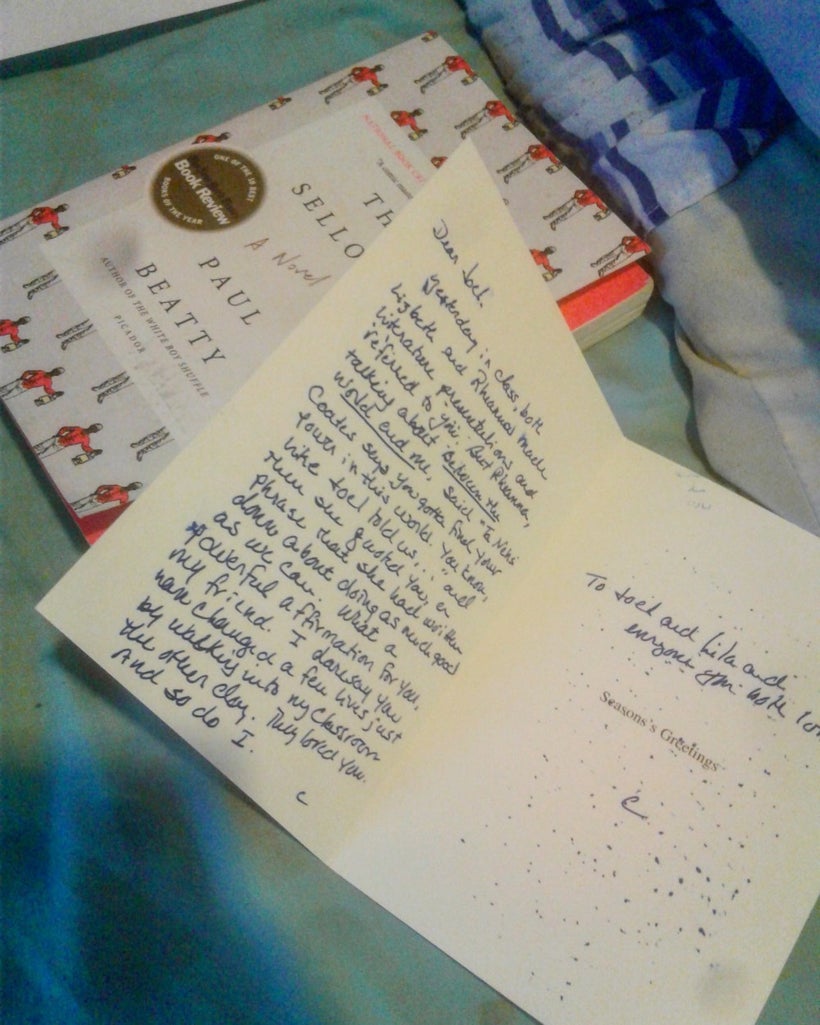 NATIONAL BOOK
ONE OF THE 10 BEST
Book Review
BOOKS OF THE YEAR
TH
SELLO
A Novel
PAUL
BEATTY
AUTHOR OF THE WHITE BOY SHUFFLE
PICADOR
Dear Joel.
Yesterday in class, both
Lizbeth and Rhianna made
literature presentations and
referred to you. But Rhianna,
talking about Between the
world and me, said "Ta Nihi
Coates says you gotta find your
yours in this world. You know,
like Joel told us..." and
then she quoted you, a
phrase that she had written
down about doing as much good
as we can. What a
powerful affirmation for you,
my friend. I daresay you
have changed a few lives just
by walking into my classroom
the other day. They loved you.
And so do I.
C
To Joel and Lila and
everyone you both lov
Seasons's Greetings
C